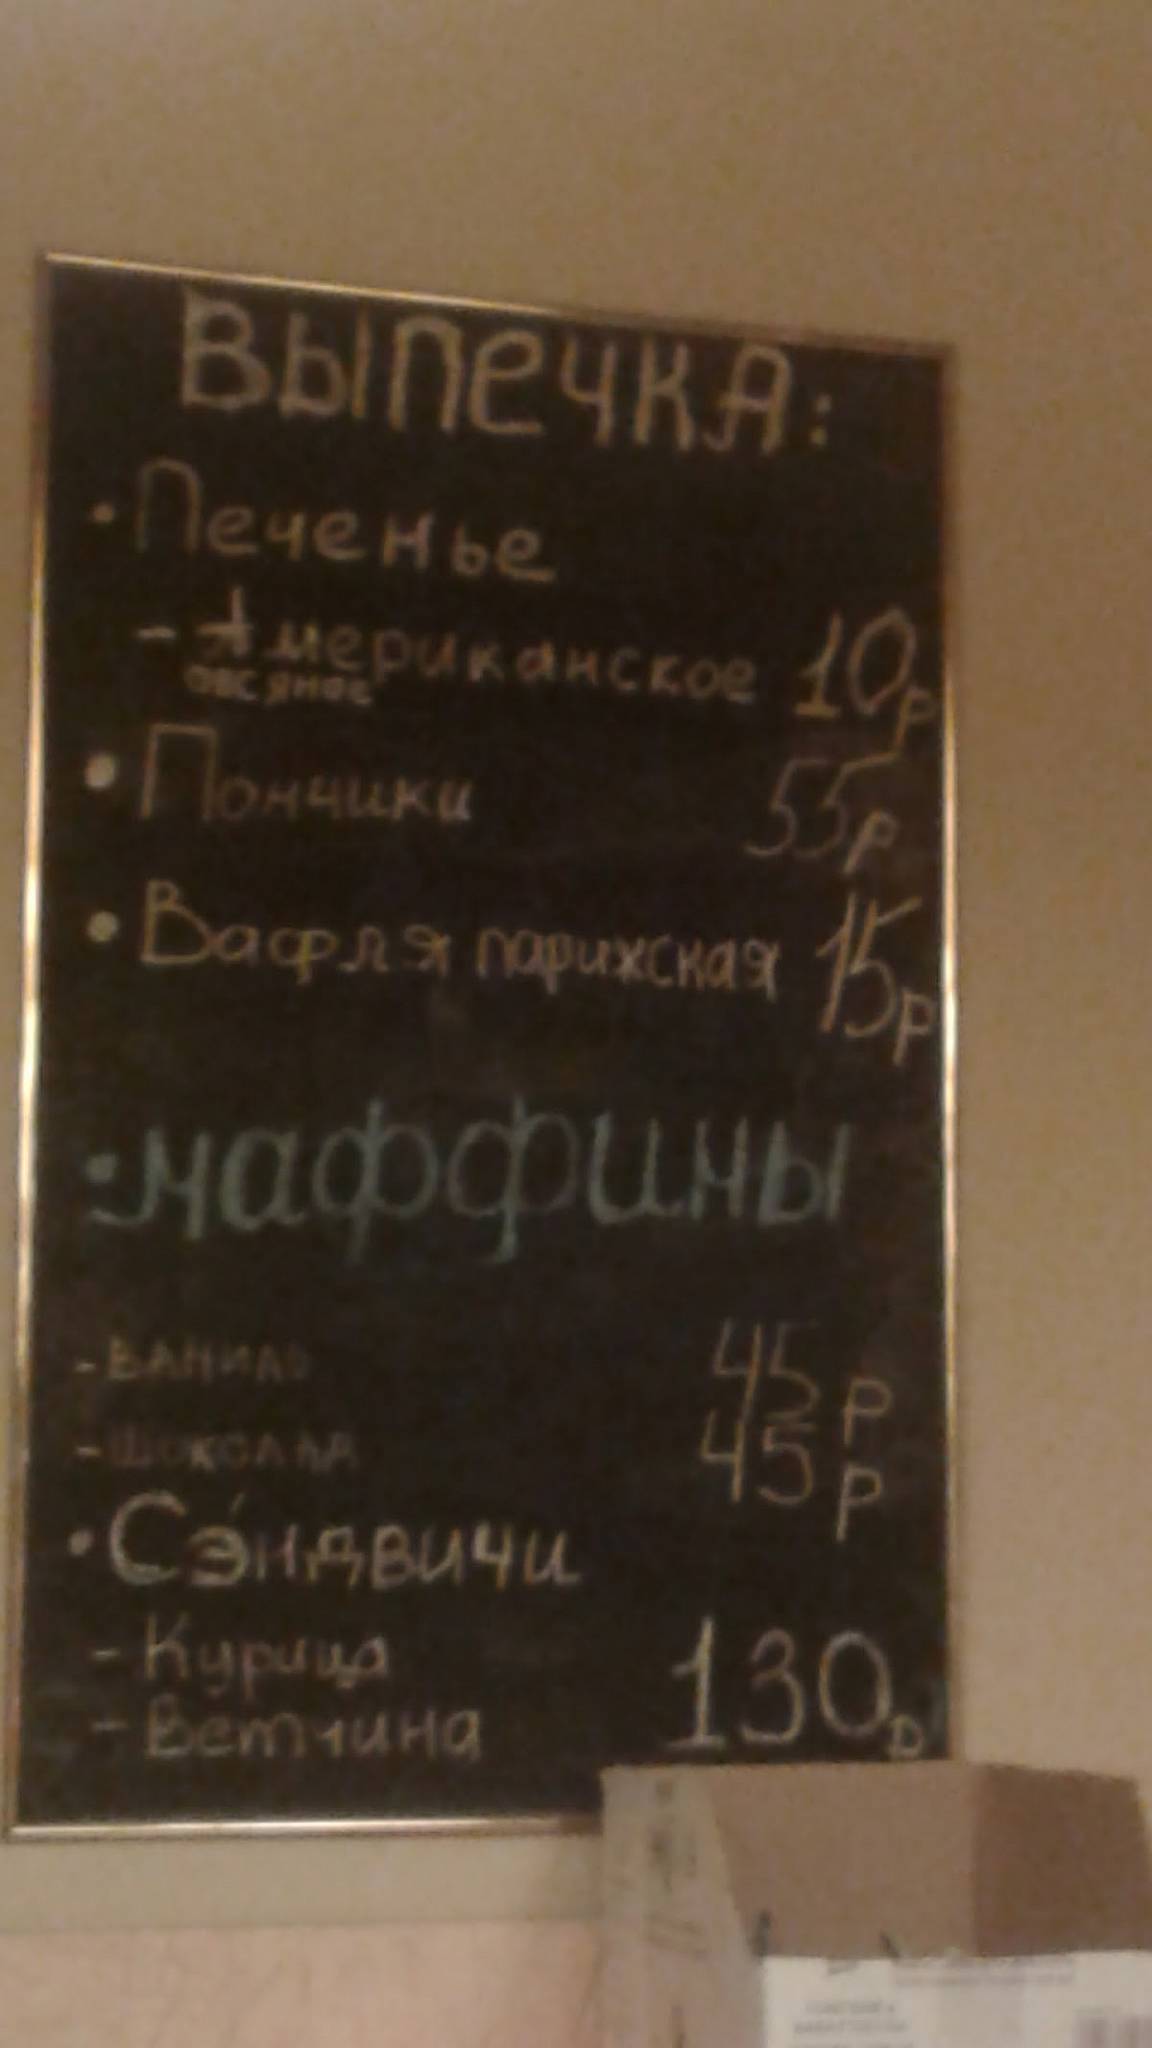 ВЫПЕЧКА:
• Печенье
- Американское 10р
овсяное
• Пончики 55р
• Вафля парижская 15р
• маффины
- ВАНИЛЬ 45 р
- ШОКОЛАД 45 р
• Сэ́ндвичи
- Курица 130р
- Ветчина